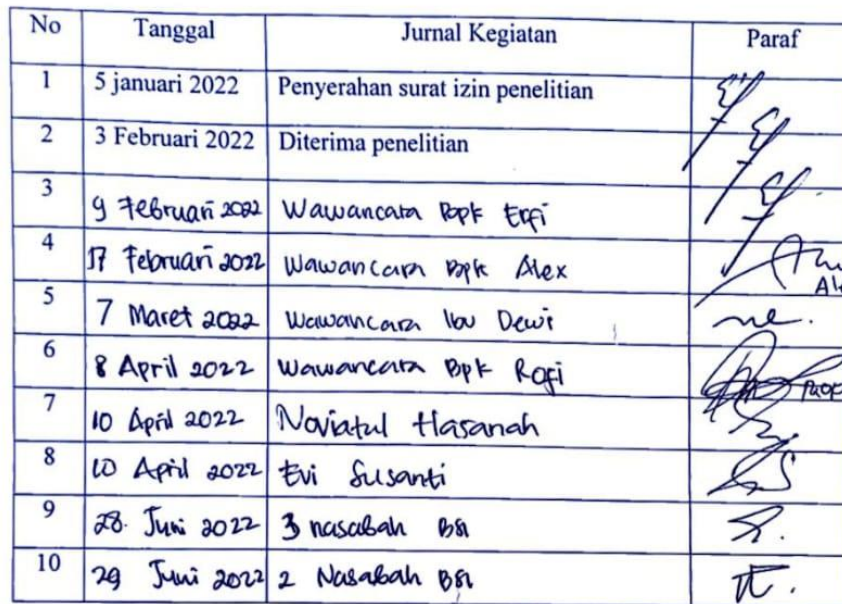 No Tanggal Jurnal Kegiatan Paraf
1 5 januari 2022 Penyerahan surat izin penelitian
2 3 Februari 2022 Diterima penelitian
3 9 Februari 2022 Wawancara Bpk Erfi
4 17 Februari 2022 Wawancara Bpk Alex
5 7 Maret 2022 Wawancara Ibu Dewi
6 8 April 2022 Wawancara Bpk Rofi
7 10 April 2022 Noviatul Hasanah
8 10 April 2022 Evi Susanti
9 28 Juni 2022 3 nasabah BSI
10 29 Juni 2022 2 Nasabah BSI